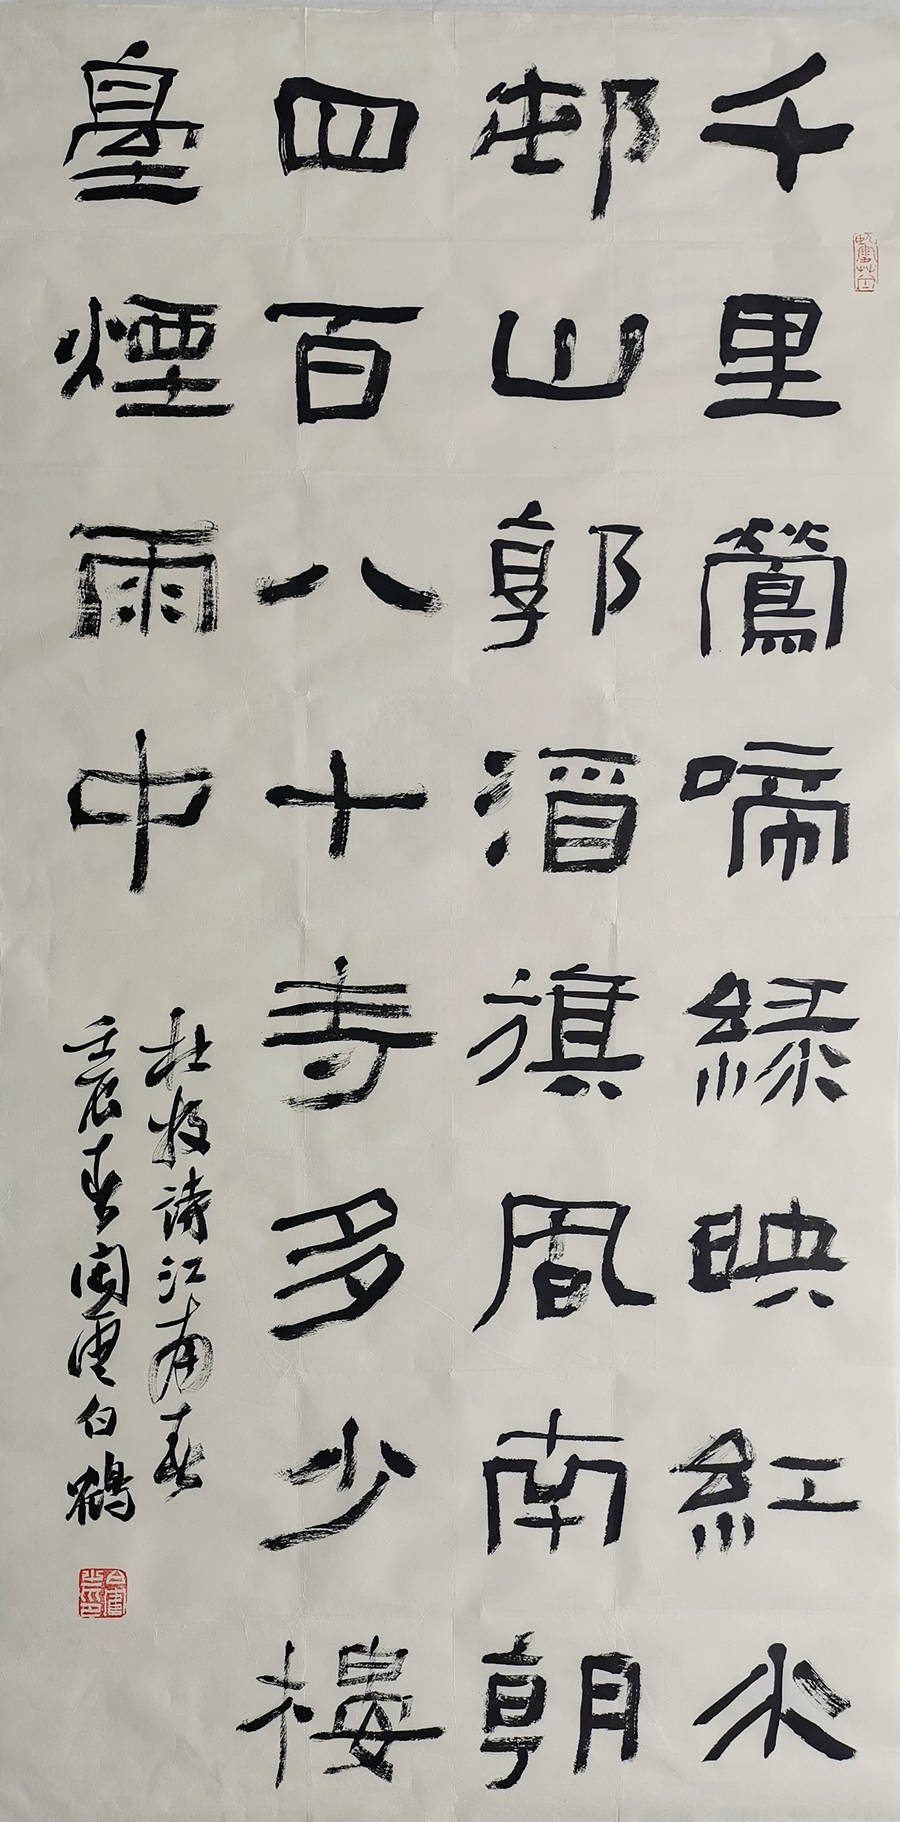 千里鶯啼緑映紅水
邨山郭酒旗風南朝
四百八十寺多少樓
臺煙雨中
杜牧詩江南春
壬辰春閑雲白鶴